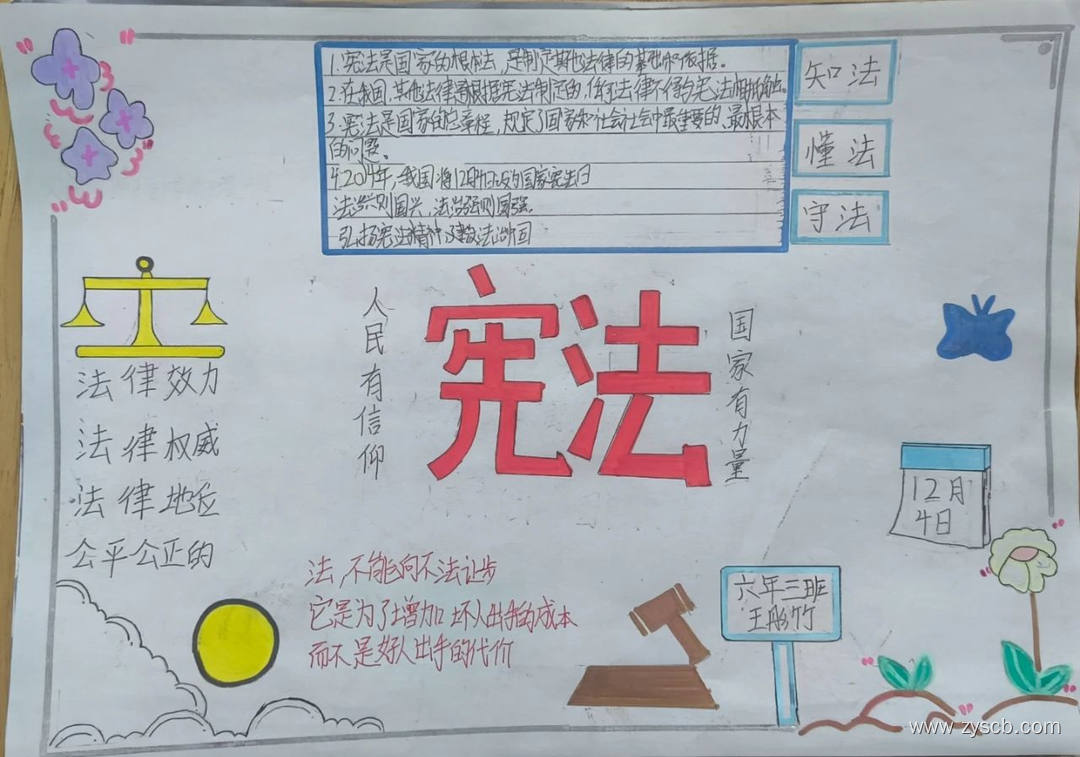 1.宪法是国家的根本法，是制定其他法律的基础和依据。
2.在我国，其他法律是根据宪法制定的，任何法律不得与宪法相抵触。
3.宪法是国家的总章程，规定了国家和社会中最重要的、最根本
的问题。
4.2014年，我国将12月4日设为国家宪法日
法治兴则国兴，法治强则国强。
弘扬宪法精神 建设法治中国
知法
懂法
守法
人民有信仰
宪法
国家有力量
法律效力
法律权威
法律地位
公平公正的
12月
4日
法,不能向不法让步
它是为了增加坏人出手的成本
而不是好人出手的代价
六年三班
王彤竹
www.zyscb.com